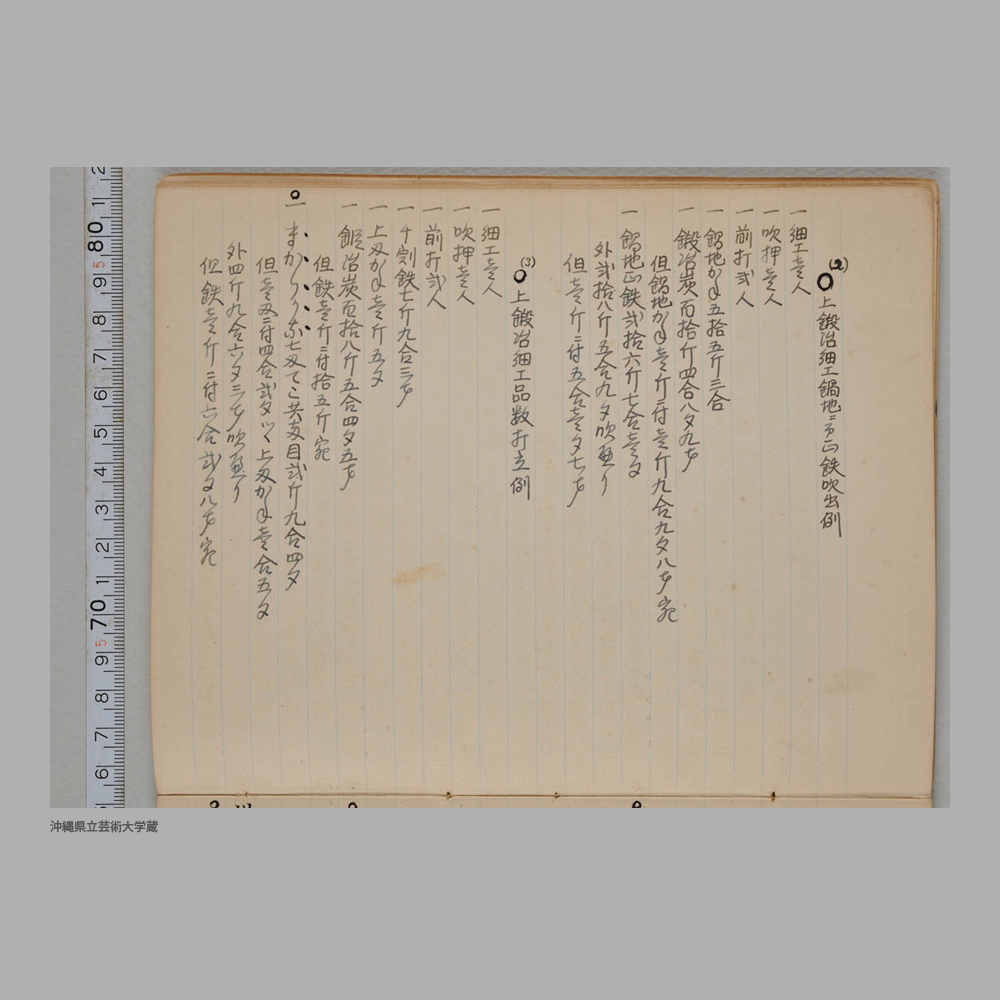 (2)
○上鍛冶細工鍋地ニ而正鉄吹出例
一細工壱人
一吹押壱人
一前打弐人
一鍋地かね五拾五斤三合
一鍛冶炭百拾斤四合八夕九才
但鍋地かね壱斤ニ付壱斤九合九夕八才宛
一鍋地正鉄弐拾六斤七合壱夕
外弐拾八斤五合九夕吹無り
但壱斤ニ付五合壱夕七才
(3)
○上鍛冶細工品数打立例
一細工壱人
一吹押壱人
一前打弐人
一千割鉄七斤九合三才
一上刃かね壱斤五夕
一鍛冶炭百拾八斤五合四夕五才
但鉄壱斤ニ付拾五斤宛
一まかり
七刃
共交目弐斤九合四夕
但壱刃ニ付四合弐夕ツヽ上刃かね壱合五夕
外四斤九合六夕三才吹無り
但鉄壱斤ニ付六合弐夕八才宛
80
70
沖縄県立芸術大学蔵